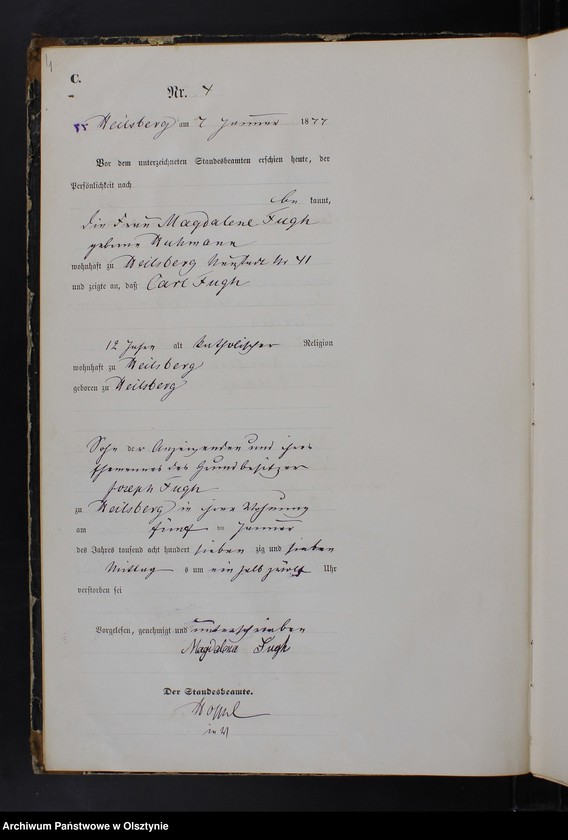 4
C.
Nr. 4
Heilsberg am 7 Januar 1877
Vor dem unterzeichneten Standesbeamten erschien heute, der
Persönlichkeit nach
be kannt,
die Frau Magdalene Fugh
geborne
wohnhaft zu Heilsberg Neustadt Nr 41
und zeigte an, daß Carl Fugh
12 Jahre alt katholischer Religion
wohnhaft zu Heilsberg
geboren zu Heilsberg
Sohn der Anzeigenden und ihres
Ehemannes des Grundbesitzer
Joseph Fugh
zu Heilsberg in ihrer Wohnung
am fünf ten Januar
des Jahres tausend acht hundert sieben zig und sieben
Mittag s um ein halb zwölf Uhr
verstorben sei
Vorgelesen, genehmigt und unterschrieben
Magdalena Fugh
Der Standesbeamte.
Archiwum Państwowe w Olsztynie